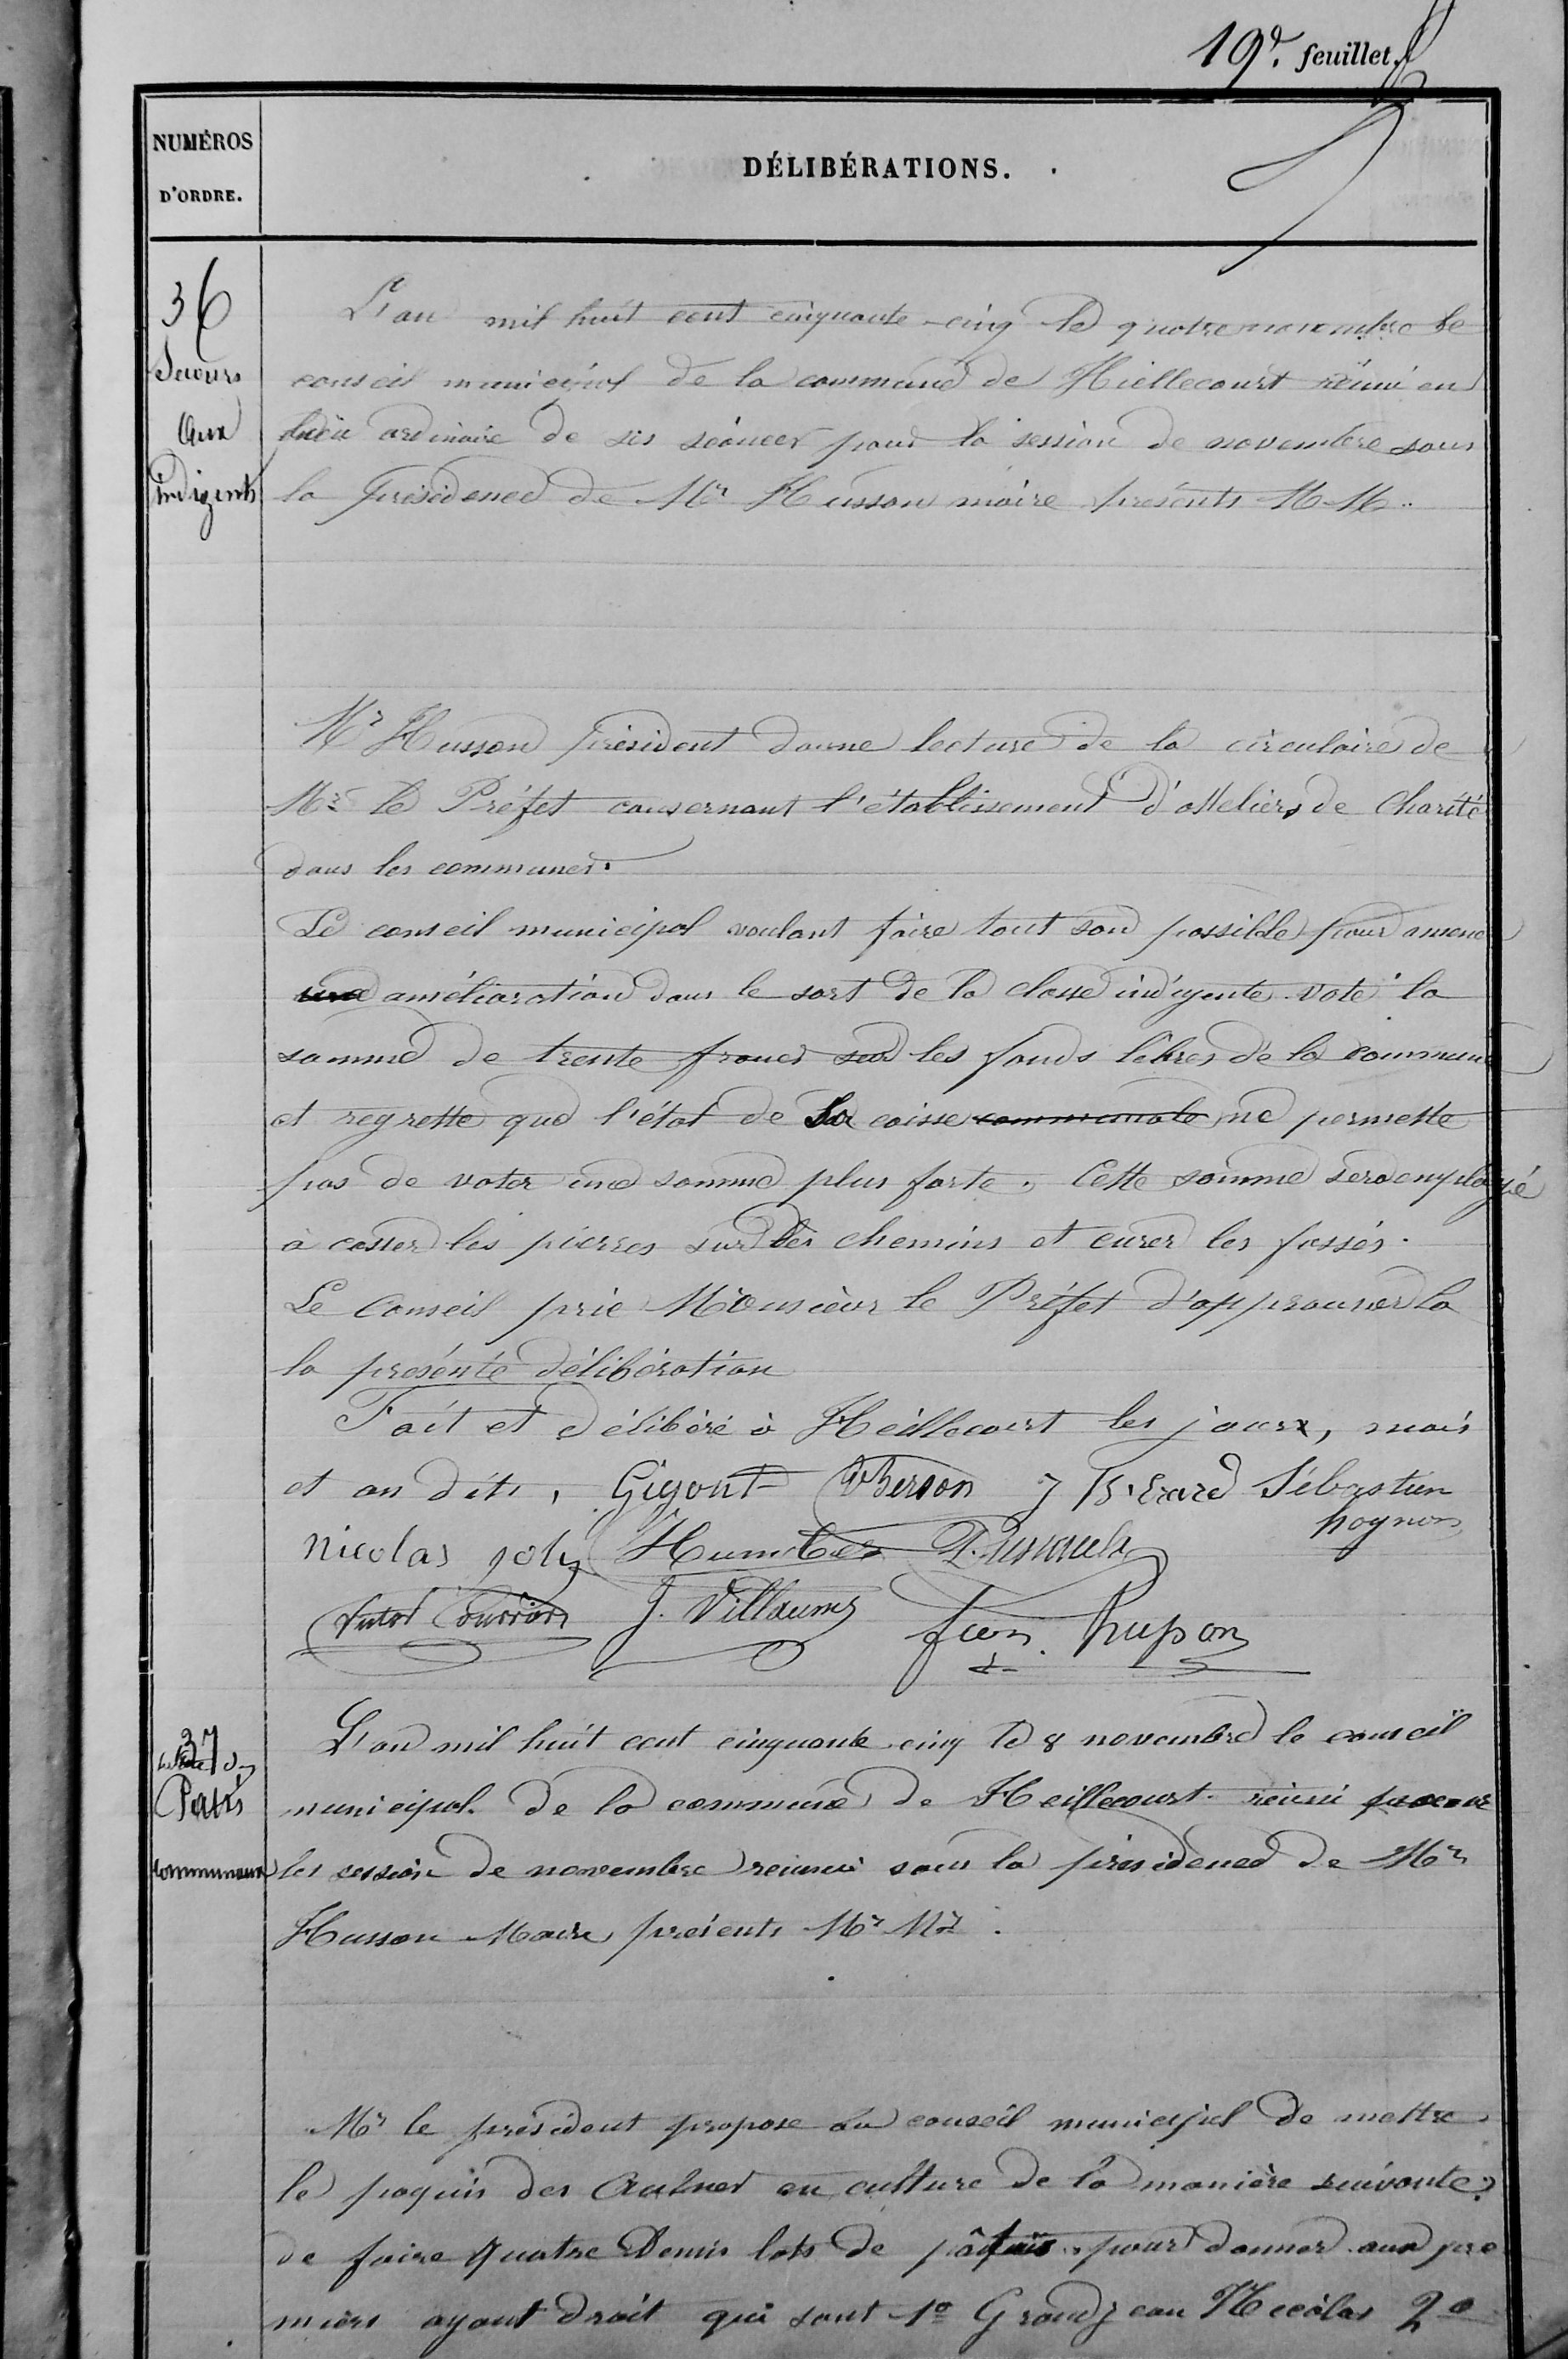 19e. feuillet.
NUMÉROS
D'ORDRE.
DÉLIBÉRATIONS.
36
Secours
aux
indigents
L'an mil huit cent cinquante-cinq le quatre novembre le
conseil municipal de la commune de Hiellecourt réuni en
lieu ordinaire de ses séances pour la session de novembre sous
la présidence de Mr Husson maire présents M.M.
Mr Husson président donne lecture de la circulaire de
Mr le Préfet consernant l'établissement d'atteliers de Charité
dans les communes.
Le conseil municipal voulant faire tout son possible pour amener
une amélioration dans le sort de la classe indigente vote la
somme de trente francs sur les fonds libres de la commune
et regrette que l'état de la caisse communale ne permette
pas de voter une somme plus forte. Cette somme sera employé
à casser les pierres sur les chemins et curer les fossés.
Le Conseil prie Monsieur le Préfet d'approuver la
la présente délibération
Fait et délibéré à Héillecourt les jours, mois
et an dits, Gigout Therson J B. Erard Sébastien
hognon
Nicolas joly Humbert
Couvion J. Villaume Jean husson
37
Patis
communaux
L'an mil huit cent cinquante cinq le 8 novembre le conseil
municipal de la commune de Heillecourt réuni pour
la session de novembre réuni sous la présidence de Mr
Husson Maire présents Mr Mr.
Mr le président propose au conseil municipal de mettre
le paquis des Aulnes en culture de la manière suivante:
de faire quatre demis lots de pâtis pour donner aux pre
miers ayant droit qui sont 1o Grandjean Nicolas 2o